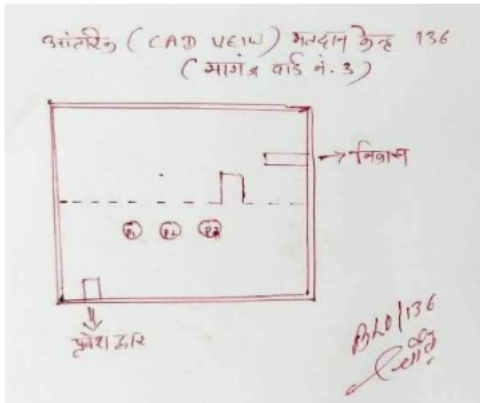 आंतरिक (CAD VEIW) मतदान केन्द्र 136
वार्ड नं. 3)
निकास
P1 P2 P3
प्रवेश द्वार
BLO/136